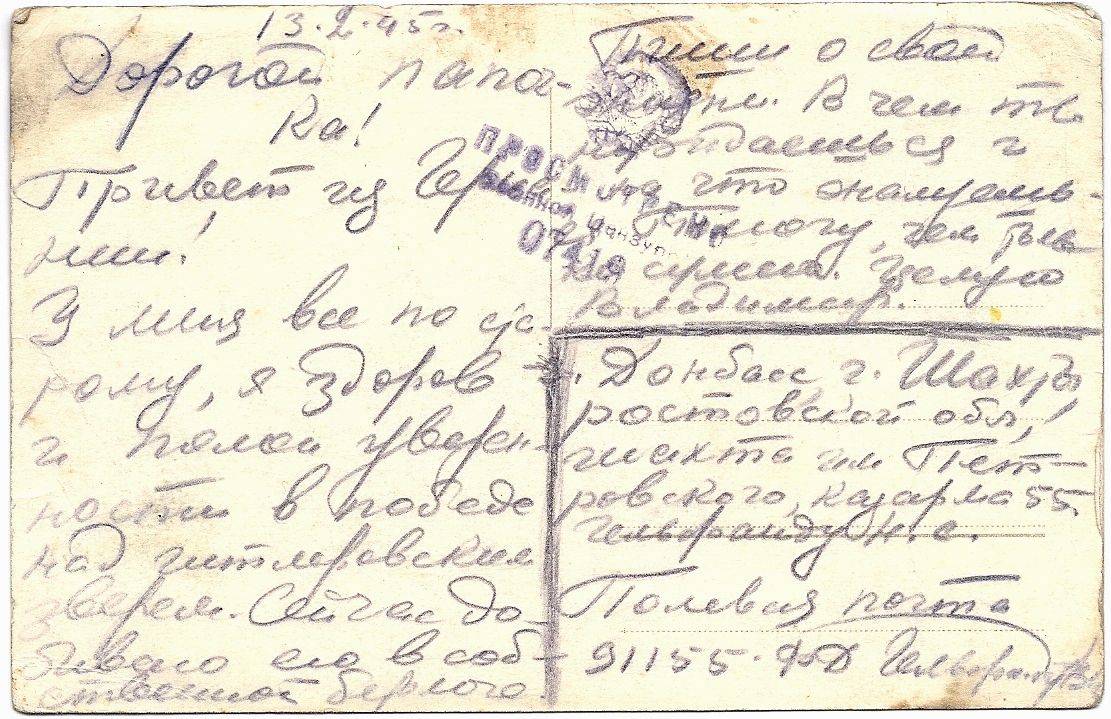 13.2.45г.
Дорогой папоч-
ка!
Привет из Герма-
нии!
У миня все по ста-
рому, я здоров
и полон уверен-
ности в победе
над гитлеровским
зверем. Сейчас до-
биваю его в соб-
ственной берлоге.
Пиши о своей
жизни. В чем ты
нуждаешься и
на что
Помогу, чем
Целую
Владимир.
ПРОСМОТРЕНО
Военной Цензурой
07418
Донбасс г. Шахты
ростовской обл,
шахта им Пет-
ровского, казарма 55.
Гельфанду Н. С.
Полевая почта
91155-ф Д Гельфанд В.